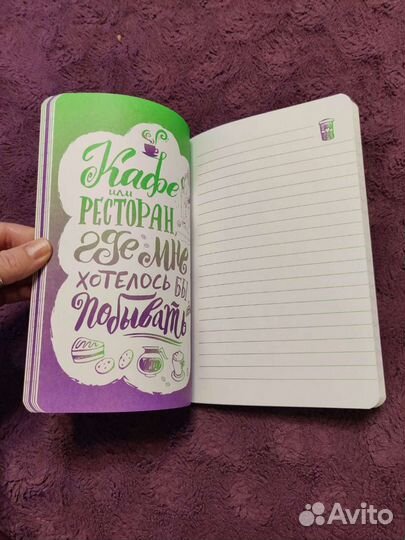 Кафе
или
РЕСТОРАН,
где мне
ХОТЕЛОСЬ БЫ
побывать
Avito